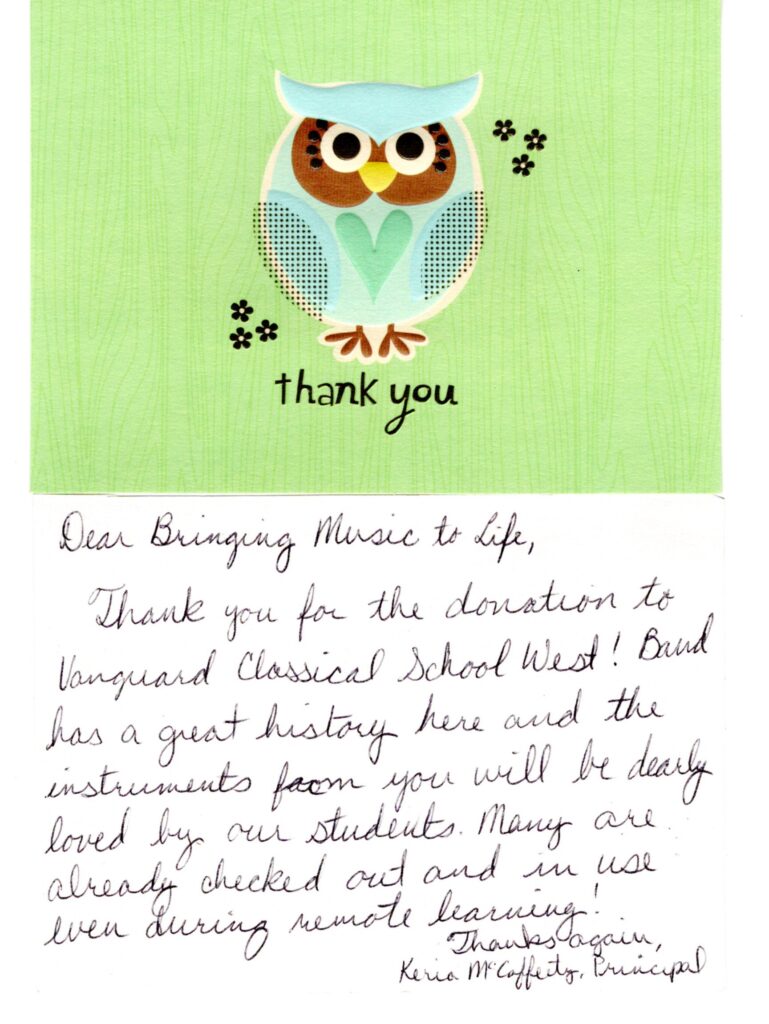 thank you
Dear Bringing Music to Life,
Thank you for the donation to
Vanguard Classical School West! Band
has a great history here and the
instruments from you will be dearly
loved by our students. Many are
already checked out and in use
even during remote learning!
Thanks again,
Keria McCafferty, Principal